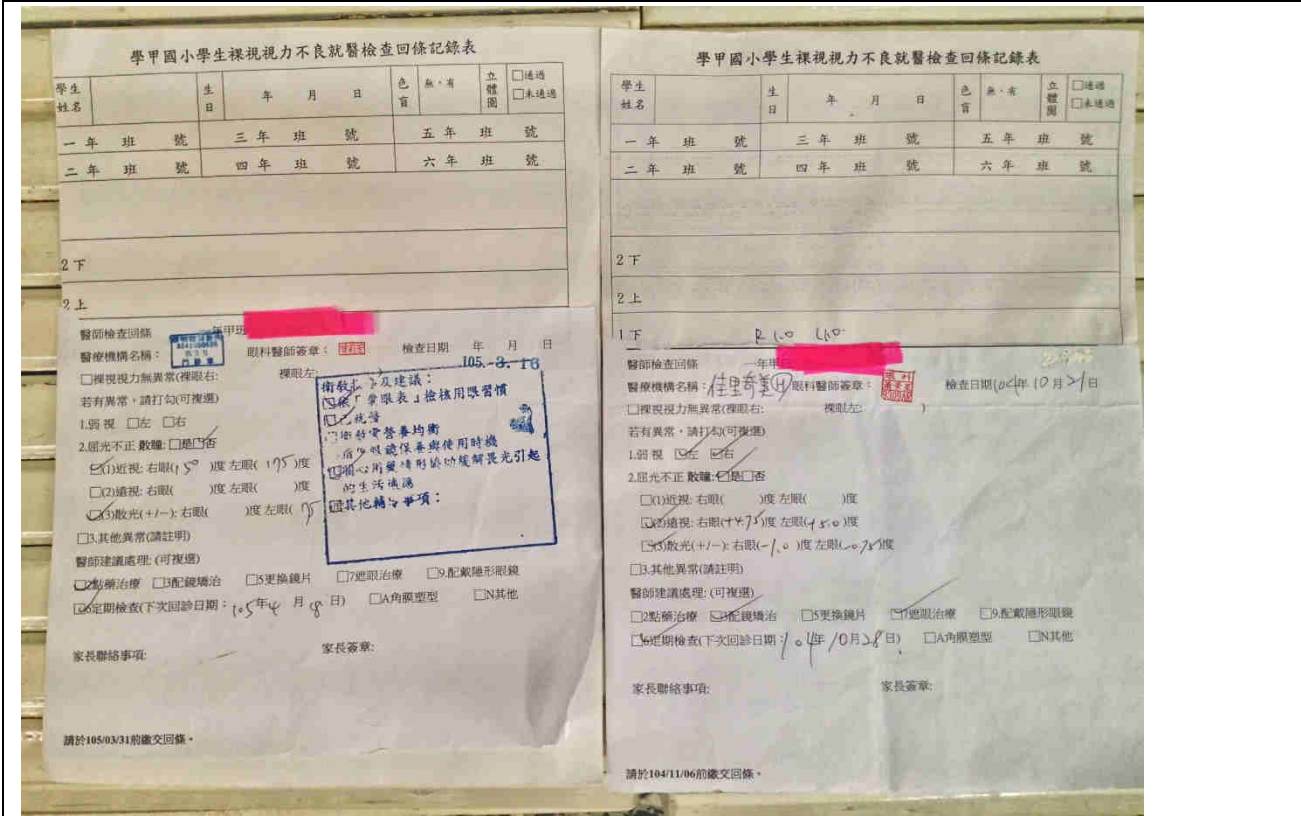 學甲國小學生裸視視力不良就醫檢查回條記錄表
學生姓名 生日 年 月 日 色盲 無、有 立體圖 □通過 □未通過
一 年 班 號 三 年 班 號 五 年 班 號
二 年 班 號 四 年 班 號 六 年 班 號
2下
2上
醫師檢查回條 一年甲班
醫療機構名稱: 眼科醫師簽章: 檢查日期 年 月 日
105.-3.-16
□裸視視力無異常(裸眼右: 裸眼左: )
若有異常,請打勾(可複選)
1.弱視 □左 □右
2.屈光不正 散瞳:□是☑否
☑(1)近視: 右眼(150 )度 左眼( 175 )度
□(2)遠視: 右眼( )度 左眼( )度
☑(3)散光(+/-): 右眼( )度 左眼( 75
□3.其他異常(請註明)
醫師建議處理: (可複選)
☑2點藥治療 □3配鏡矯治 □5更換鏡片 □7遮眼治療 □9.配戴隱形眼鏡
☑6定期檢查(下次回診日期:105年4 月 8 日) □A角膜塑型 □N其他
家長聯絡事項: 家長簽章:
請於105/03/31前繳交回條。
及建議:
「掌眼表」檢核用眼習慣
營養均衡
眼鏡保養與使用時機
用藥情形協助緩解畏光引起
的生活
其他輔 事項:
學甲國小學生裸視視力不良就醫檢查回條記錄表
學生姓名 生日 年 月 日 色盲 無、有 立體圖 □通過 □未通過
一 年 班 號 三 年 班 號 五 年 班 號
二 年 班 號 四 年 班 號 六 年 班 號
2下
2上
1下 R 1.0 L1.0
醫師檢查回條 一年甲
醫療機構名稱:佳里奇美 眼科醫師簽章: 檢查日期104年10月21日
□裸視視力無異常(裸眼右: 裸眼左: )
若有異常,請打勾(可複選)
1.弱視 ☑左 ☑右
2.屈光不正 散瞳:☑是□否
□(1)近視: 右眼( )度 左眼( )度
☑(2)遠視: 右眼(+4.75)度 左眼(+5.0)度
☑(3)散光(+/-): 右眼(-1.0 )度 左眼(-0.75)度
□3.其他異常(請註明)
醫師建議處理: (可複選)
□2點藥治療 ☑3配鏡矯治 □5更換鏡片 ☑7遮眼治療 □9.配戴隱形眼鏡
☑6定期檢查(下次回診日期:104年10月28日) □A角膜塑型 □N其他
家長聯絡事項: 家長簽章:
請於104/11/06前繳交回條。